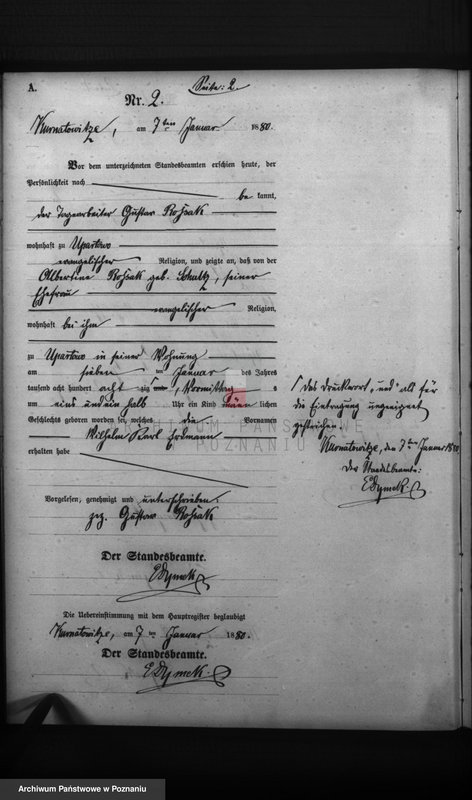 A.
Seite: 2.
Nr. 2.
Kurnatowitze, am 7ten Januar 1880.
Vor dem unterzeichneten Standesbeamten erschien heute, der
Persönlichkeit nach
be kannt,
der Tagearbeiter Gustav
wohnhaft zu Upartowo
evangelischer Religion, und zeigte an, daß von der
Albertine geb. Schultz, seiner
Ehefrau
evangelischer Religion,
wohnhaft bei ihm
zu Upartowo in seiner Wohnung
am sieben ten Januar des Jahres
tausend acht hundert acht zig und, Vormittag s
um eins und ein halb Uhr ein Kind männ lichen
Geschlechts geboren worden sei, welches die Vornamen
Wilhelm Karl Erdmann
erhalten habe
Vorgelesen, genehmigt und unterschrieben.
gez. Gustav
Der Standesbeamte.
EDymek
Die Uebereinstimmung mit dem Hauptregister beglaubigt
Kurnatowitze, am 7 ten Januar 1880.
Der Standesbeamte.
EDymek
Das Druckwort „und" als für
die Eintragung ungeeignet
gestrichen.
Kurnatowitze, den 7ten Januar 1880
Der Standesbeamte:
EDymek
ARCHIWUM PAŃSTWOWE
W POZNANIU
Archiwum Państwowe w Poznaniu